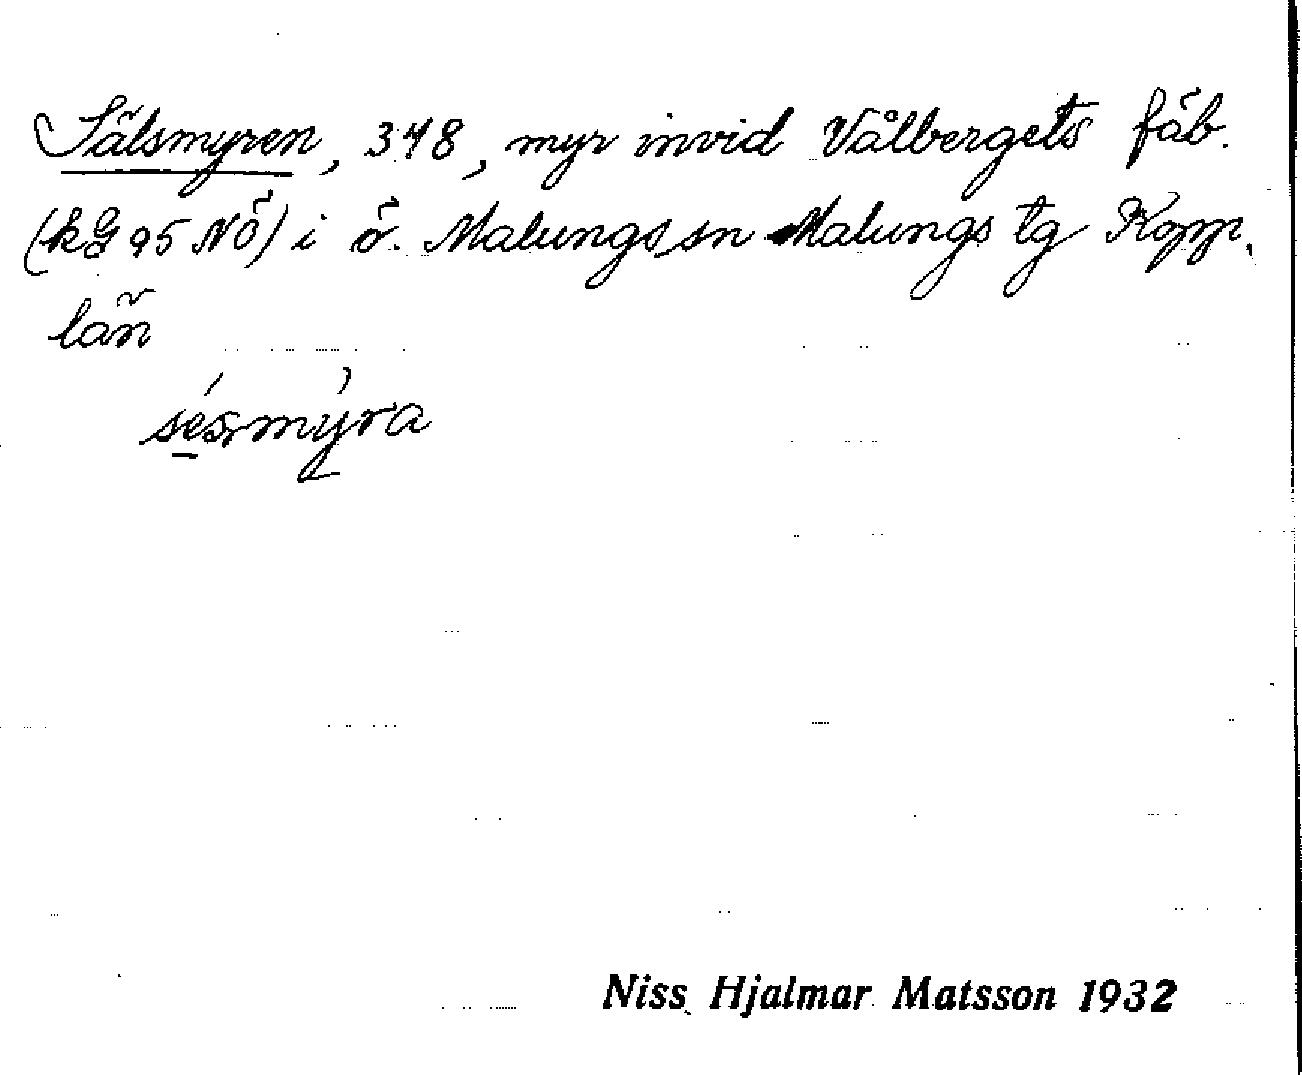 Sälsmyren, 348, myr invid Vålbergets fäb.
(kG 95 NÖ) i ö. Malungs sn Malungs tg Kopp.
län
séssmỳra
Niss Hjalmar Matsson 1932